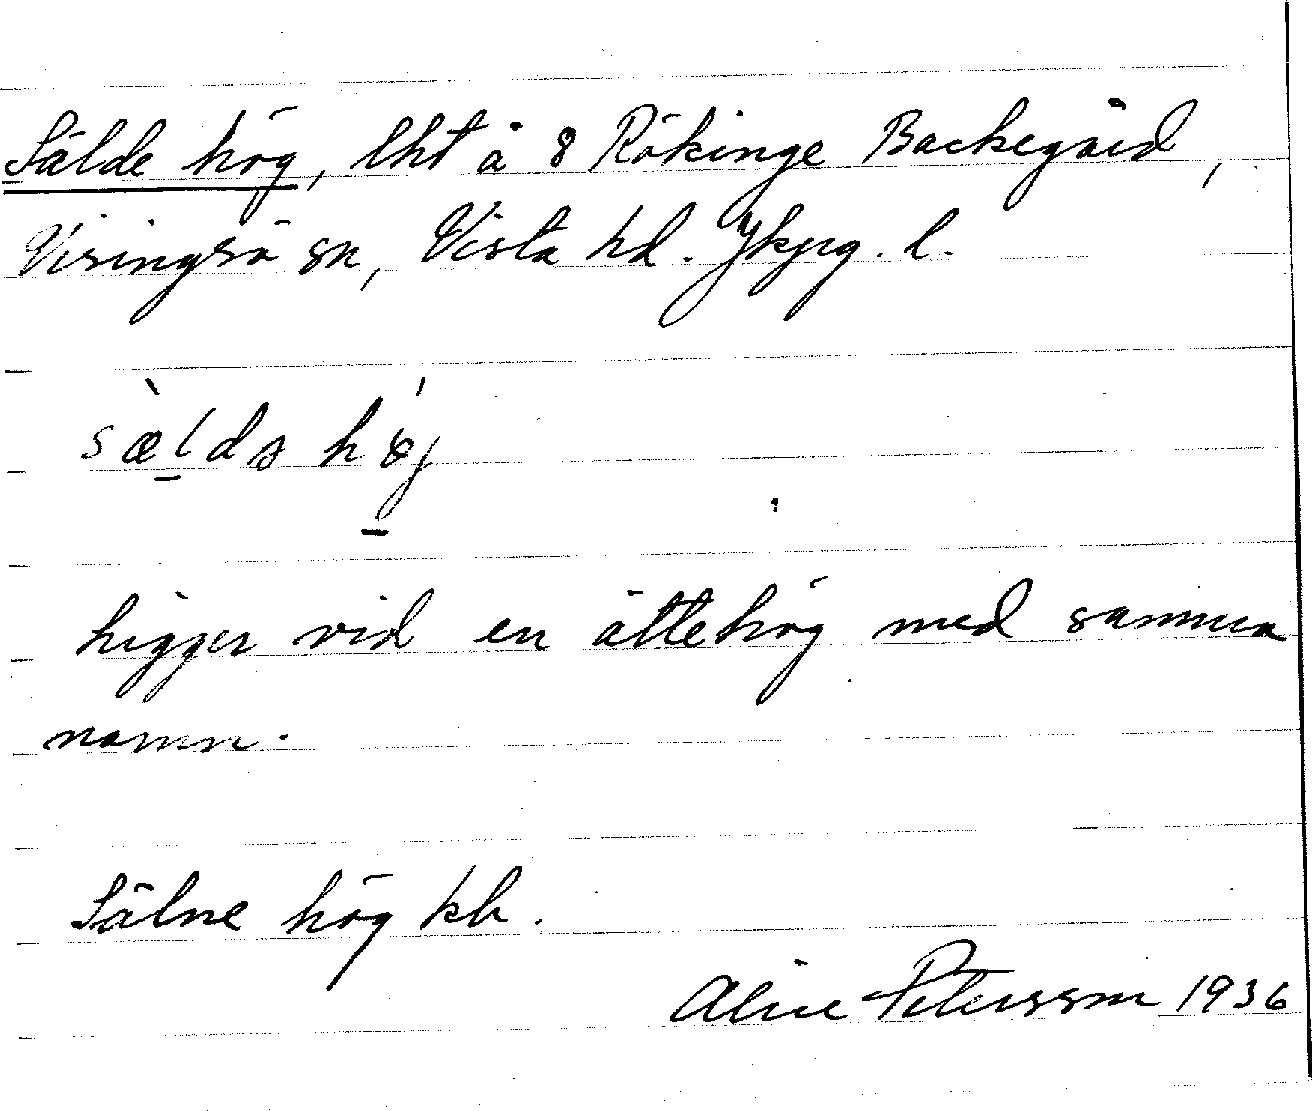 Sälde hög, lht å 8 Rökinge Backegård,
Visingsö sn, Vista hd. Jkpg. l.
sæ̀ldə hǿg
ligger vid en ättehög med samma
namn.
Sälne hög kb.
Aline Petersson 1936